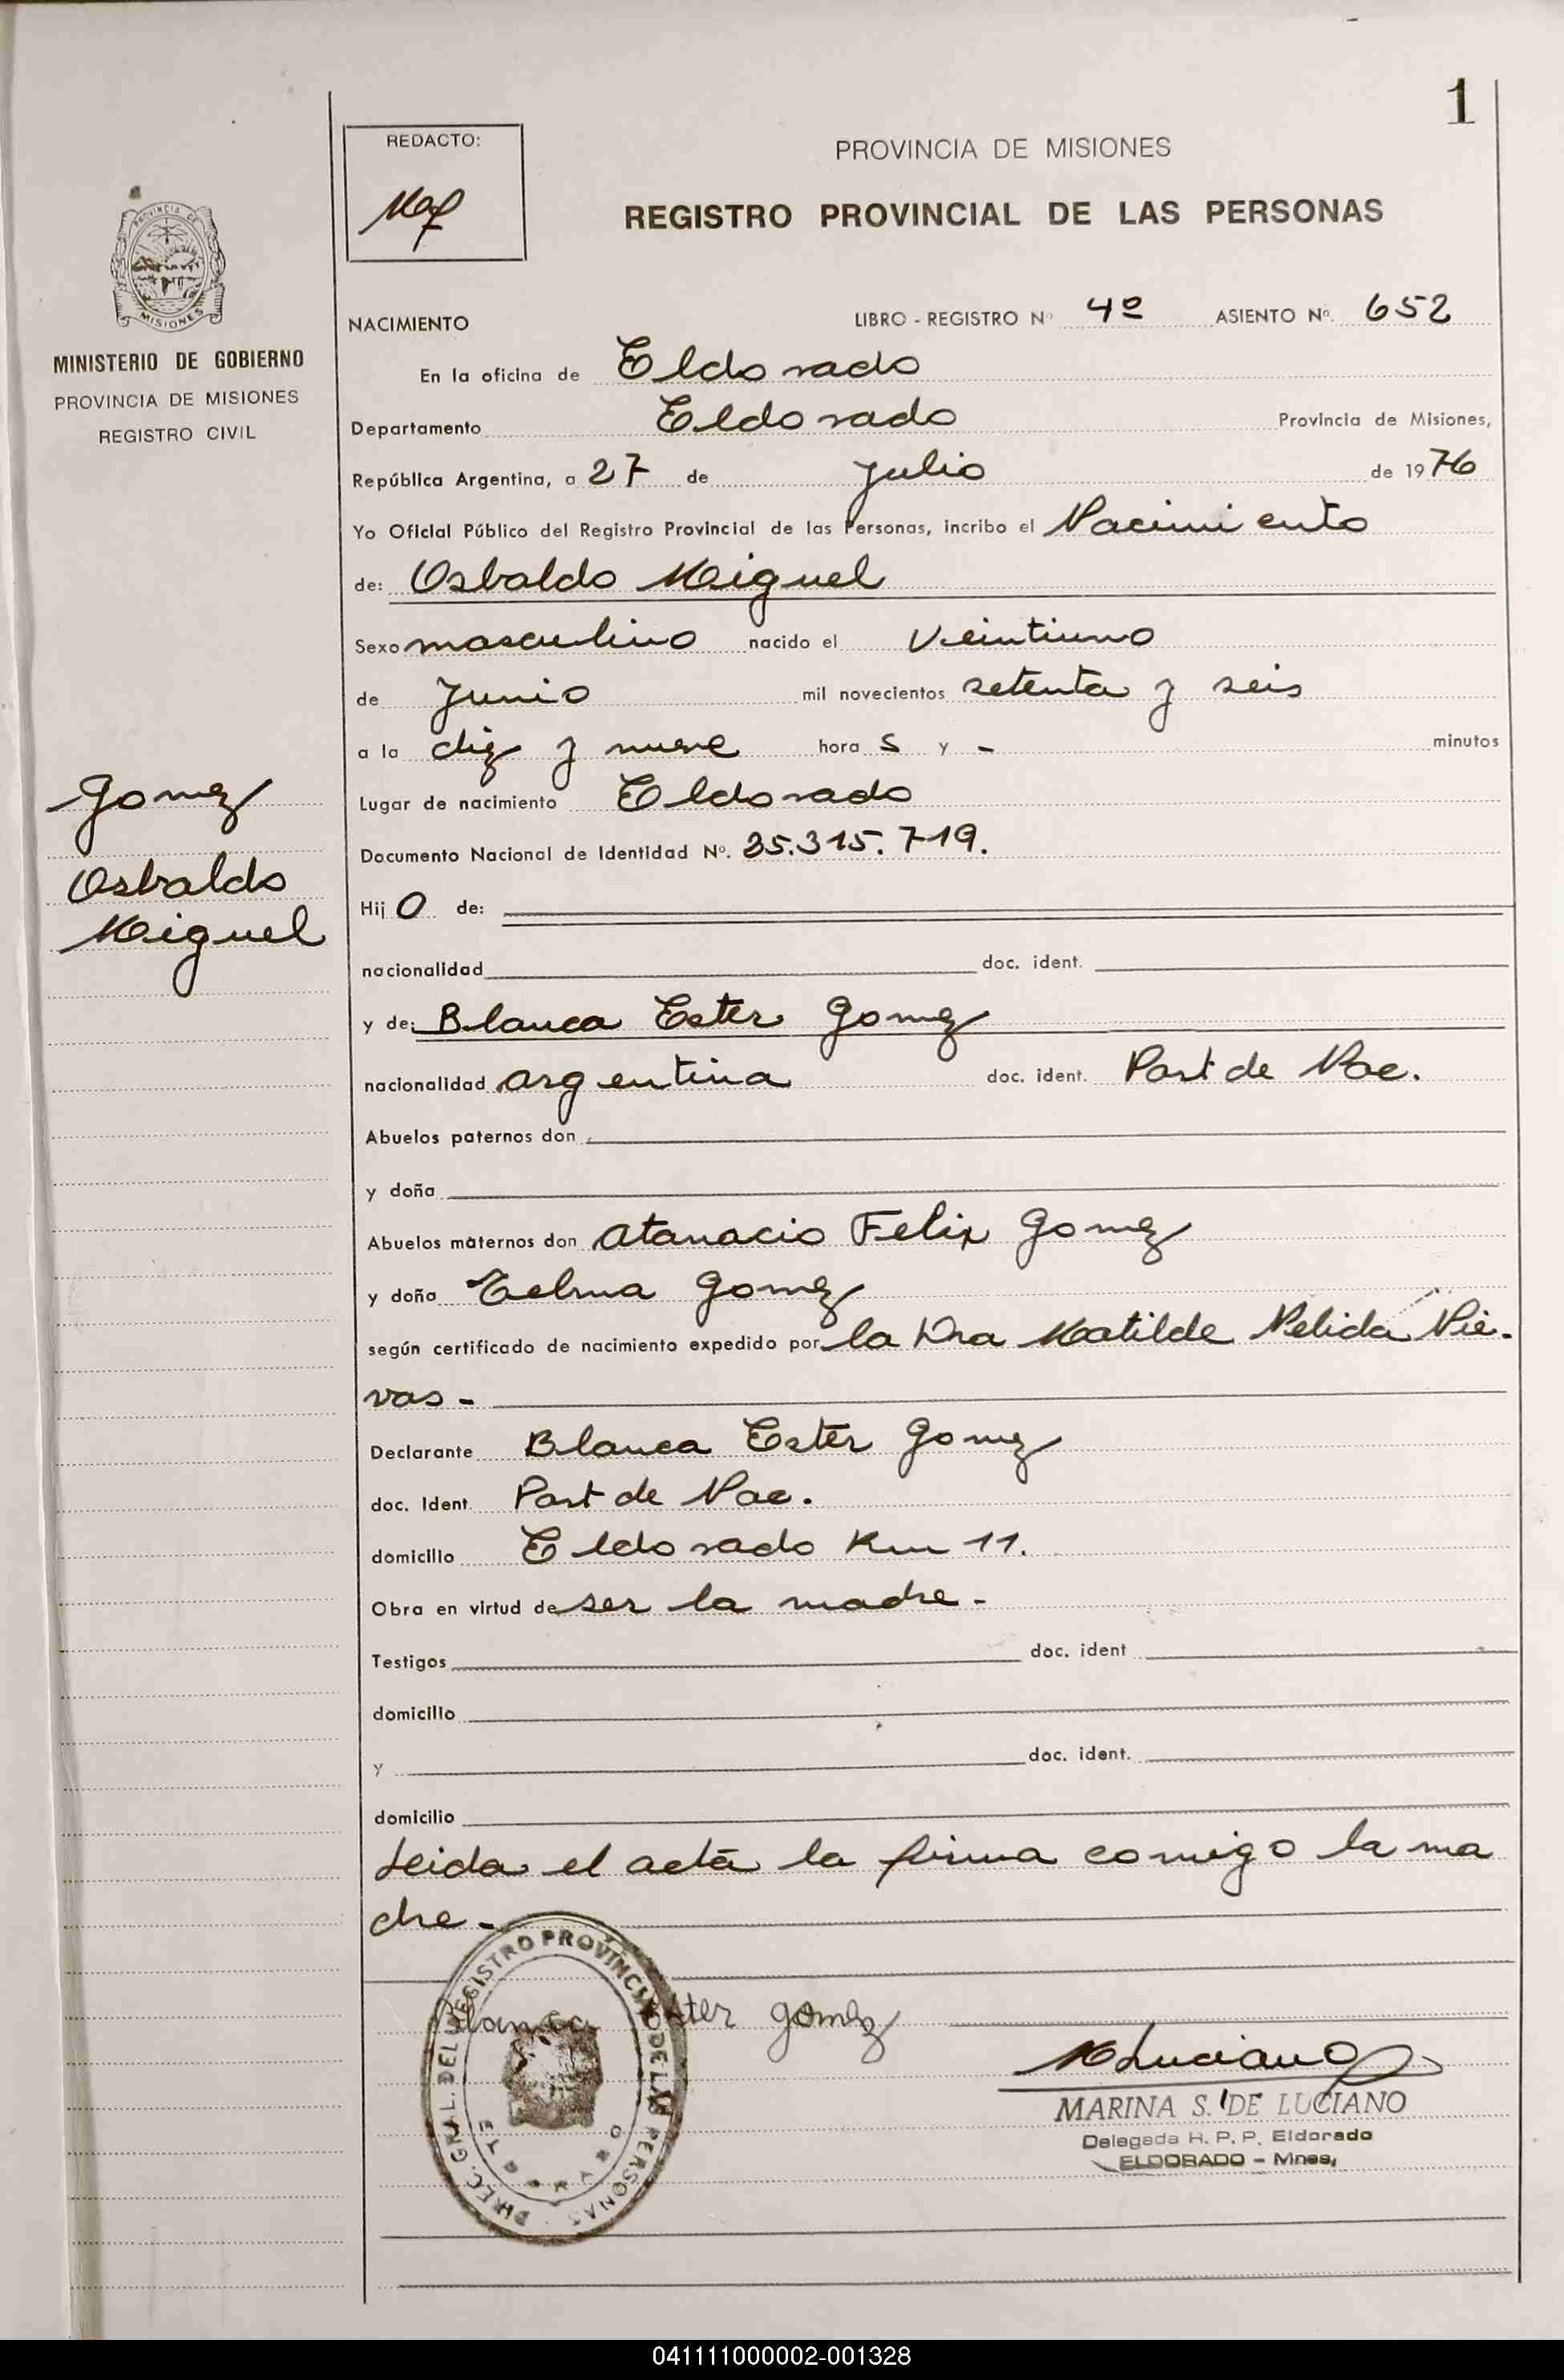 1
REDACTO:
PROVINCIA DE MISIONES
REGISTRO PROVINCIAL DE LAS PERSONAS
PROVINCIA DE
MISIONES
MINISTERIO DE GOBIERNO
PROVINCIA DE MISIONES
REGISTRO CIVIL
Gomez
Osbaldo
Miguel
NACIMIENTO LIBRO - REGISTRO Nº 4º ASIENTO Nº. 652
En la oficina de Eldorado
Departamento Eldorado Provincia de Misiones,
República Argentina, a 27 de Julio de 1976
Yo Oficial Público del Registro Provincial de las Personas, incribo el Nacimiento
de: Osbaldo Miguel
Sexo masculino nacido el Veintiuno
de Junio mil novecientos setenta y seis
a la diez y nueve hora s y - minutos
Lugar de nacimiento Eldorado
Documento Nacional de Identidad Nº. 25.315.719.
Hij o de:
nacionalidad doc. ident.
y de: Blanca Ester Gomez
nacionalidad argentina doc. ident. Part de Nac.
Abuelos paternos don
y doña
Abuelos maternos don Atanacio Felix Gomez
y doña Telma Gomez
según certificado de nacimiento expedido por la Dra Matilde Nelida Nie-
vas -
Declarante Blanca Ester Gomez
doc. Ident. Part de Nac.
domicilio Eldorado Km 11.
Obra en virtud de ser la madre -
Testigos doc. ident
domicilio
y doc. ident.
domicilio
Leida el acta la firma comigo la ma
dre -
Blanca Ester gomez
DIREC. GRAL. DEL REGISTRO PROVINCIAL DE LAS PERSONAS
ELDORADO
MLuciano
MARINA S. DE LUCIANO
Delegada R. P. P. Eldorado
ELDORADO - Mnes,
041111000002-001328